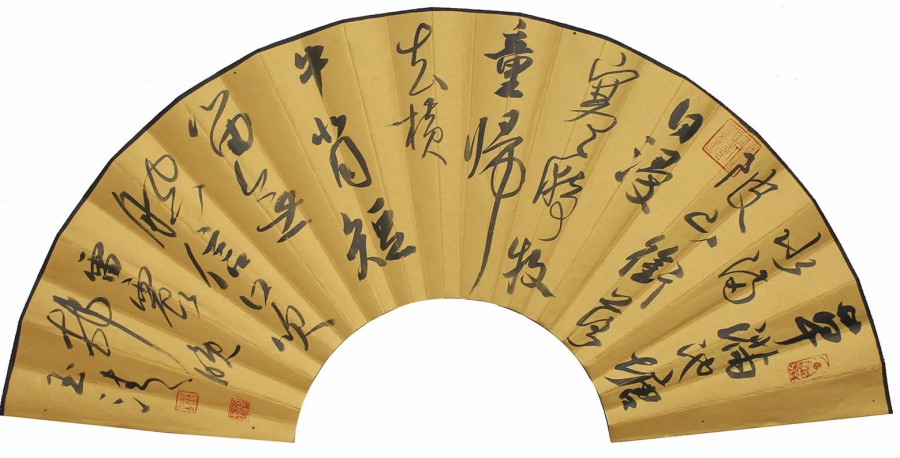 草满池塘
水满
陂山衔落
日浸
寒漪牧
童归
去横
牛背短
笛无
腔信口吹
雷震